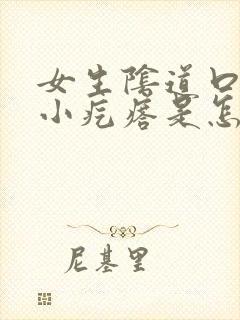 女生陰道口
小疙瘩是怎
尼基里